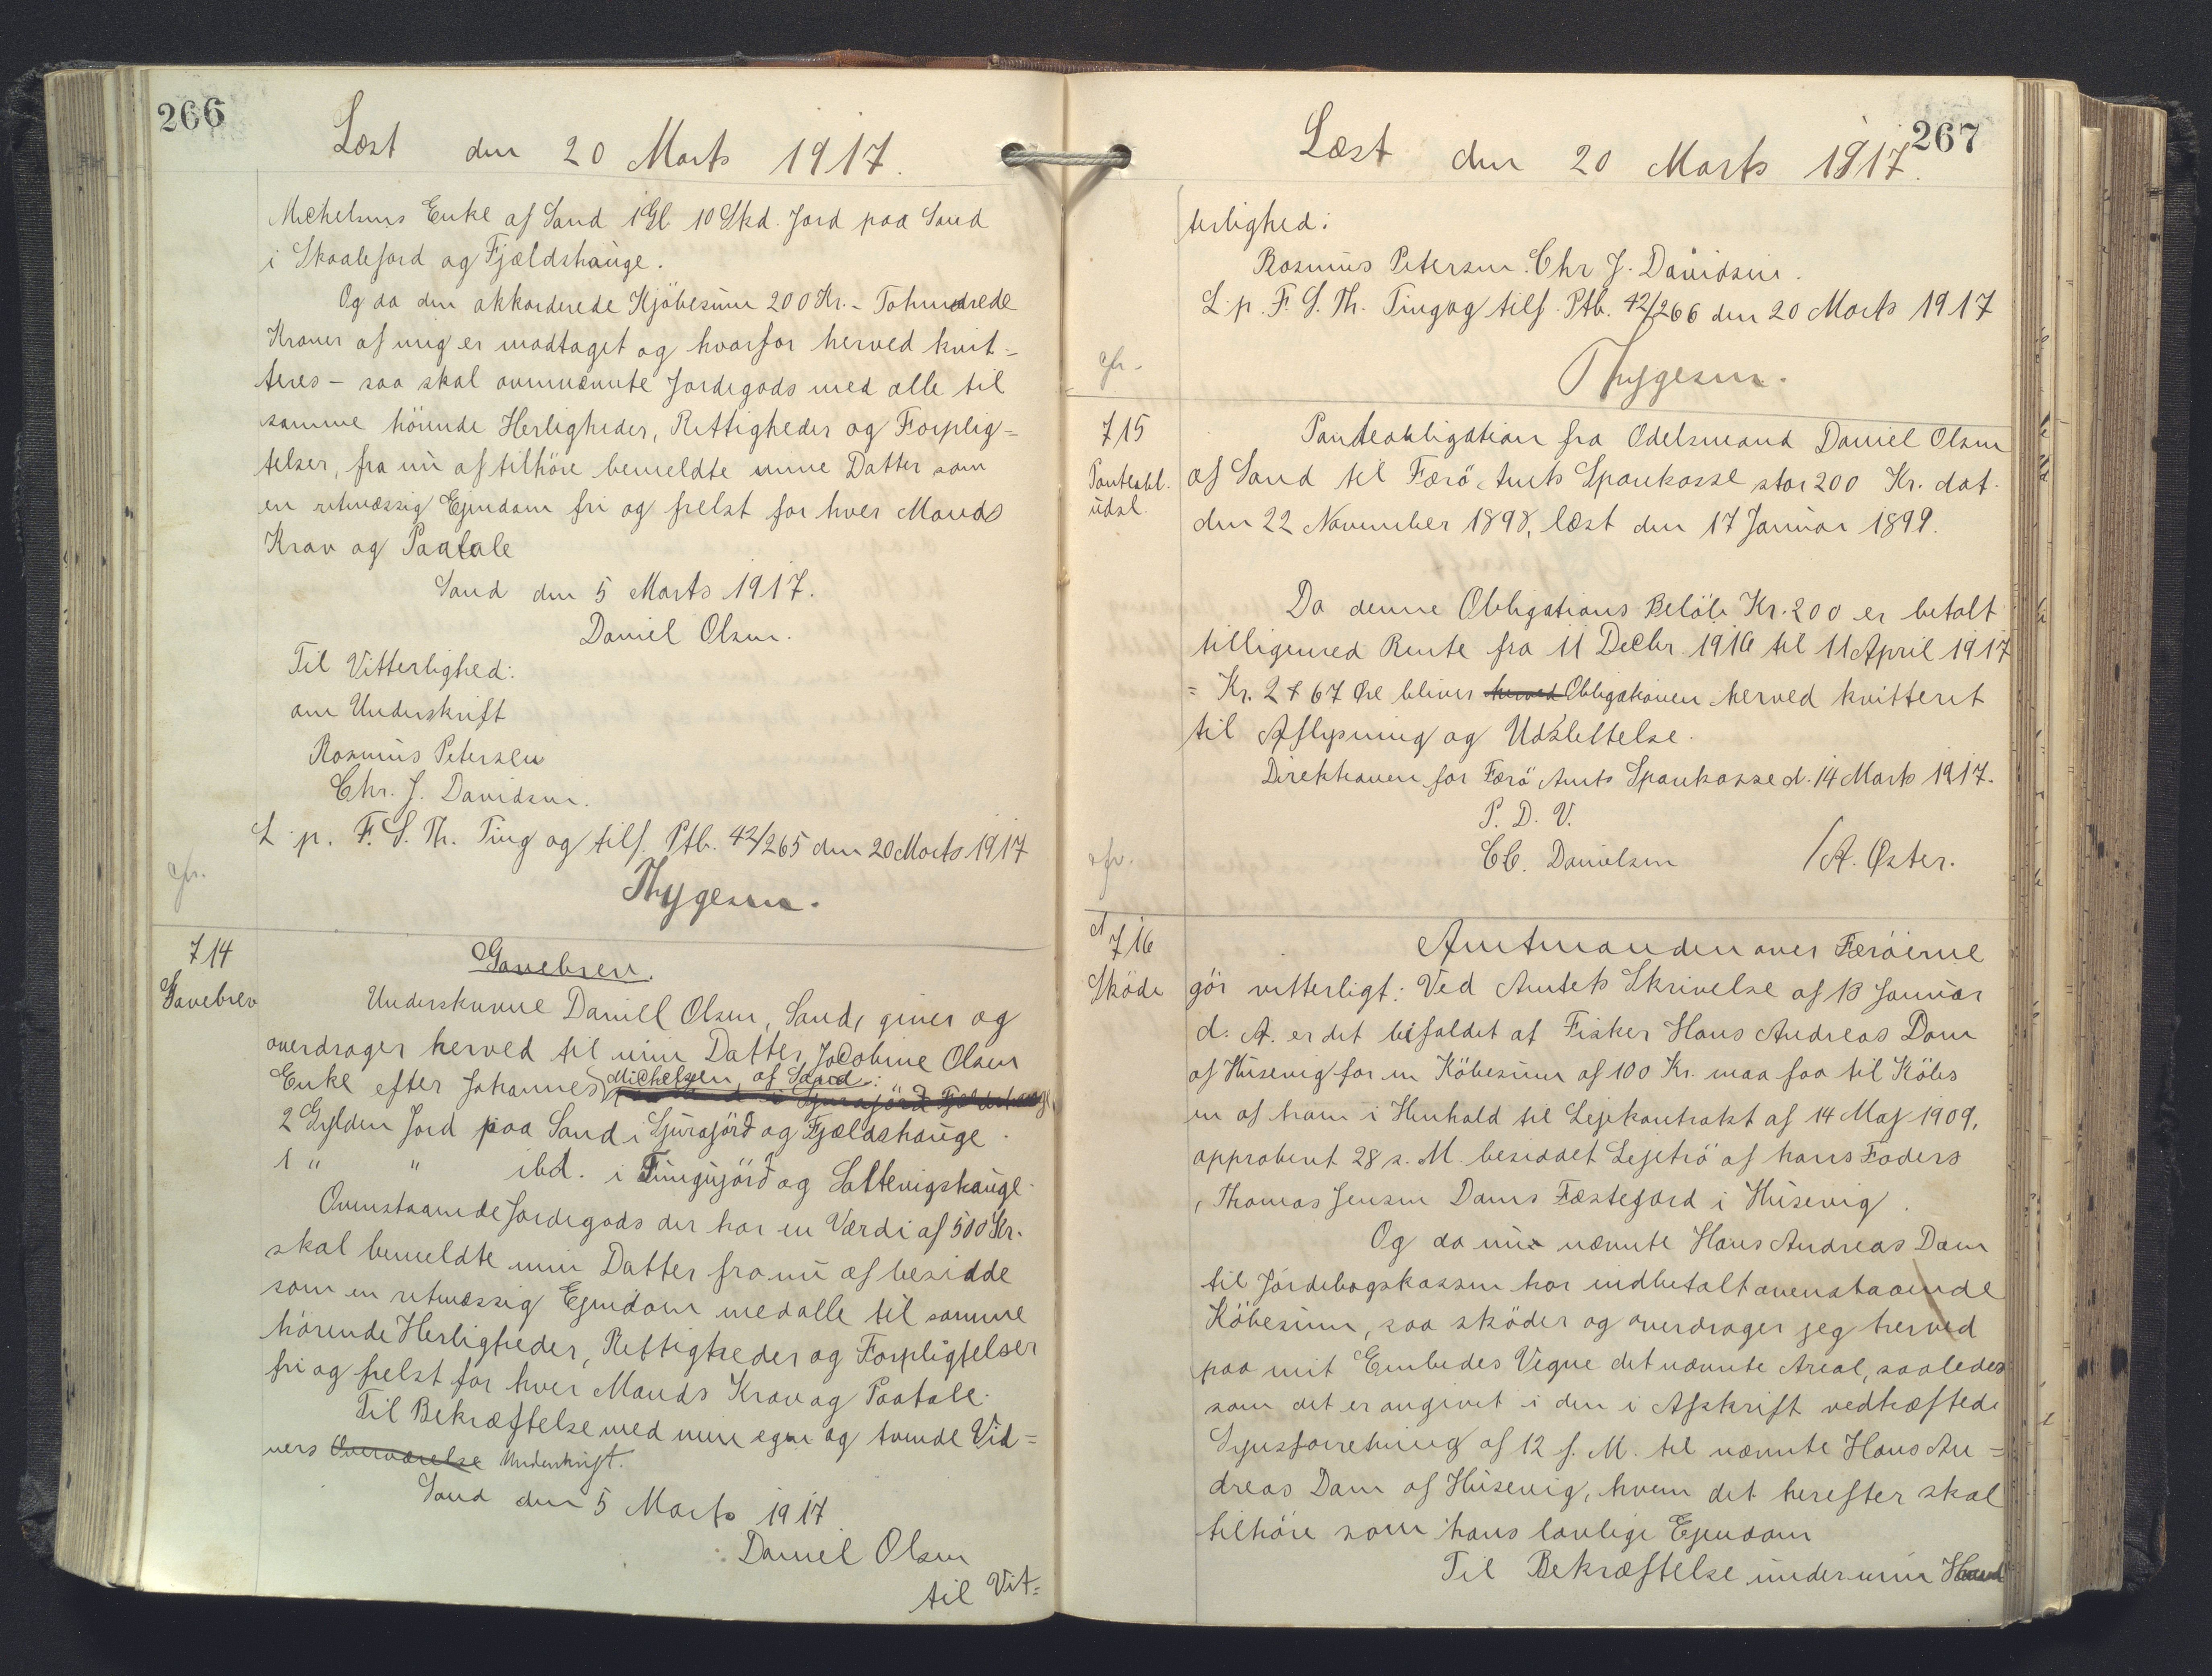 266
Læst den 20 Marts 1917.
Michelsens Enke af Sand 1 Gl 10 Skd. Jord paa Sand
i Skaalejord og Fjældshauge.
Og da den akkorderede Kjöbesum 200 Kr. - Tohundrede
Kroner af mig er modtaget og hvorfor herved kvit=
teres - saa skal ovennævnte Jordegods med alle til
samme hörende Herligheder, Rettigheder og Forplig=
telser, fra nu af tilhöre bemeldte mine Datter som
en retmæssig Ejendom fri og frelst for hver Mands
Krav og Paatale
Sand den 5 Marts 1917.
Daniel Olsen.
Til Vitterlighed:
om Underskrift
Rasmus Petersen
Chr. J. Davidsen.
L. p. F. S. Th. Ting og tilf. Ptb. 42/265 den 20 Marts 1917
cfr.
Thygesen.
714
Gavebrev
Gavebrev.
Underskrevne Daniel Olsen, Sand, giver og
overdrager herved til min Datter Jacobine Olsen
Enke efter Johannes Michelsen, af Sand:
2 Gylden Jord paa Sand i Sjurajörd og Fjældshauge.
1 " " ibd. i Tungujörd og Saltevigshauge.
Ovenstaaende Jordegods der har en Værdi af 500 Kr.
skal bemeldte min Datter fra nu af besidde
som en retmæssig Ejendom med alle til samme
hörende Herligheder, Rettigheder og Forpligtelser
fri og frelst for hver Mands Krav og Paatale.
Til Bekræftelse med min egen og tvende Vid=
ners Overværelse Underskrift.
Sand den 5 Marts 1917
Daniel Olsen
til Vit=
267
Læst den 20 Marts 1917.
terlighed:
Rasmus Petersen. Chr J. Davidsen.
L. p. F. S. Th. Ting og tilf. Ptb. 42/266 den 20 Marts 1917
cfr.
Thygesen.
715
Panteobl.
udsl.
Panteobligation fra Odelsmand Daniel Olsen
af Sand til Færö Amts Sparekasse stor 200 Kr. dat.
den 22 November 1898, læst den 17 Januar 1899.
Da denne Obligations Belöb Kr. 200 er betalt
tilligemed Rente fra 11 Decbr 1916 til 11 April 1917
= Kr. 2 + 67 Øre bliver herved Obligationen herved kvitteret
til Aflysning og Udslettelse.
Direktionen for Færö Amts Sparekasse d. 14 Marts 1917.
P. D. V.
C.C. Danielsen /A. Øster.
cfr.
716
Sköde
Amtmanden over Færöerne
gör vitterligt: Ved Amtets Skrivelse af 13 Januar
d. A. er det bifaldet at Fisker Hans Andreas Dam
af Husevig for en Köbesum af 100 Kr. maa faa til Köbs
en af ham i Henhold til Lejekontrakt af 14 Maj 1909,
approberet 28 s. M. besiddet Lejetrö af hans Faders
, Thomas Jensen Dams Fæstejord i Husevig.
Og da nu nævnte Hans Andreas Dam
til Jordebogskassen har indbetalt ovenstaaende
Köbesum, saa sköder og overdrager jeg herved
paa mit Embedes Vegne det nævnte Areal, saaledes
som det er angivet i den i Afskrift vedhæftede
Synsforretning af 12 f. M. til nævnte Hans An=
dreas Dam af Husevig, hvem det herefter skal
tilhöre som hans lovlige Ejendom
Til Bekræftelse under min Haand